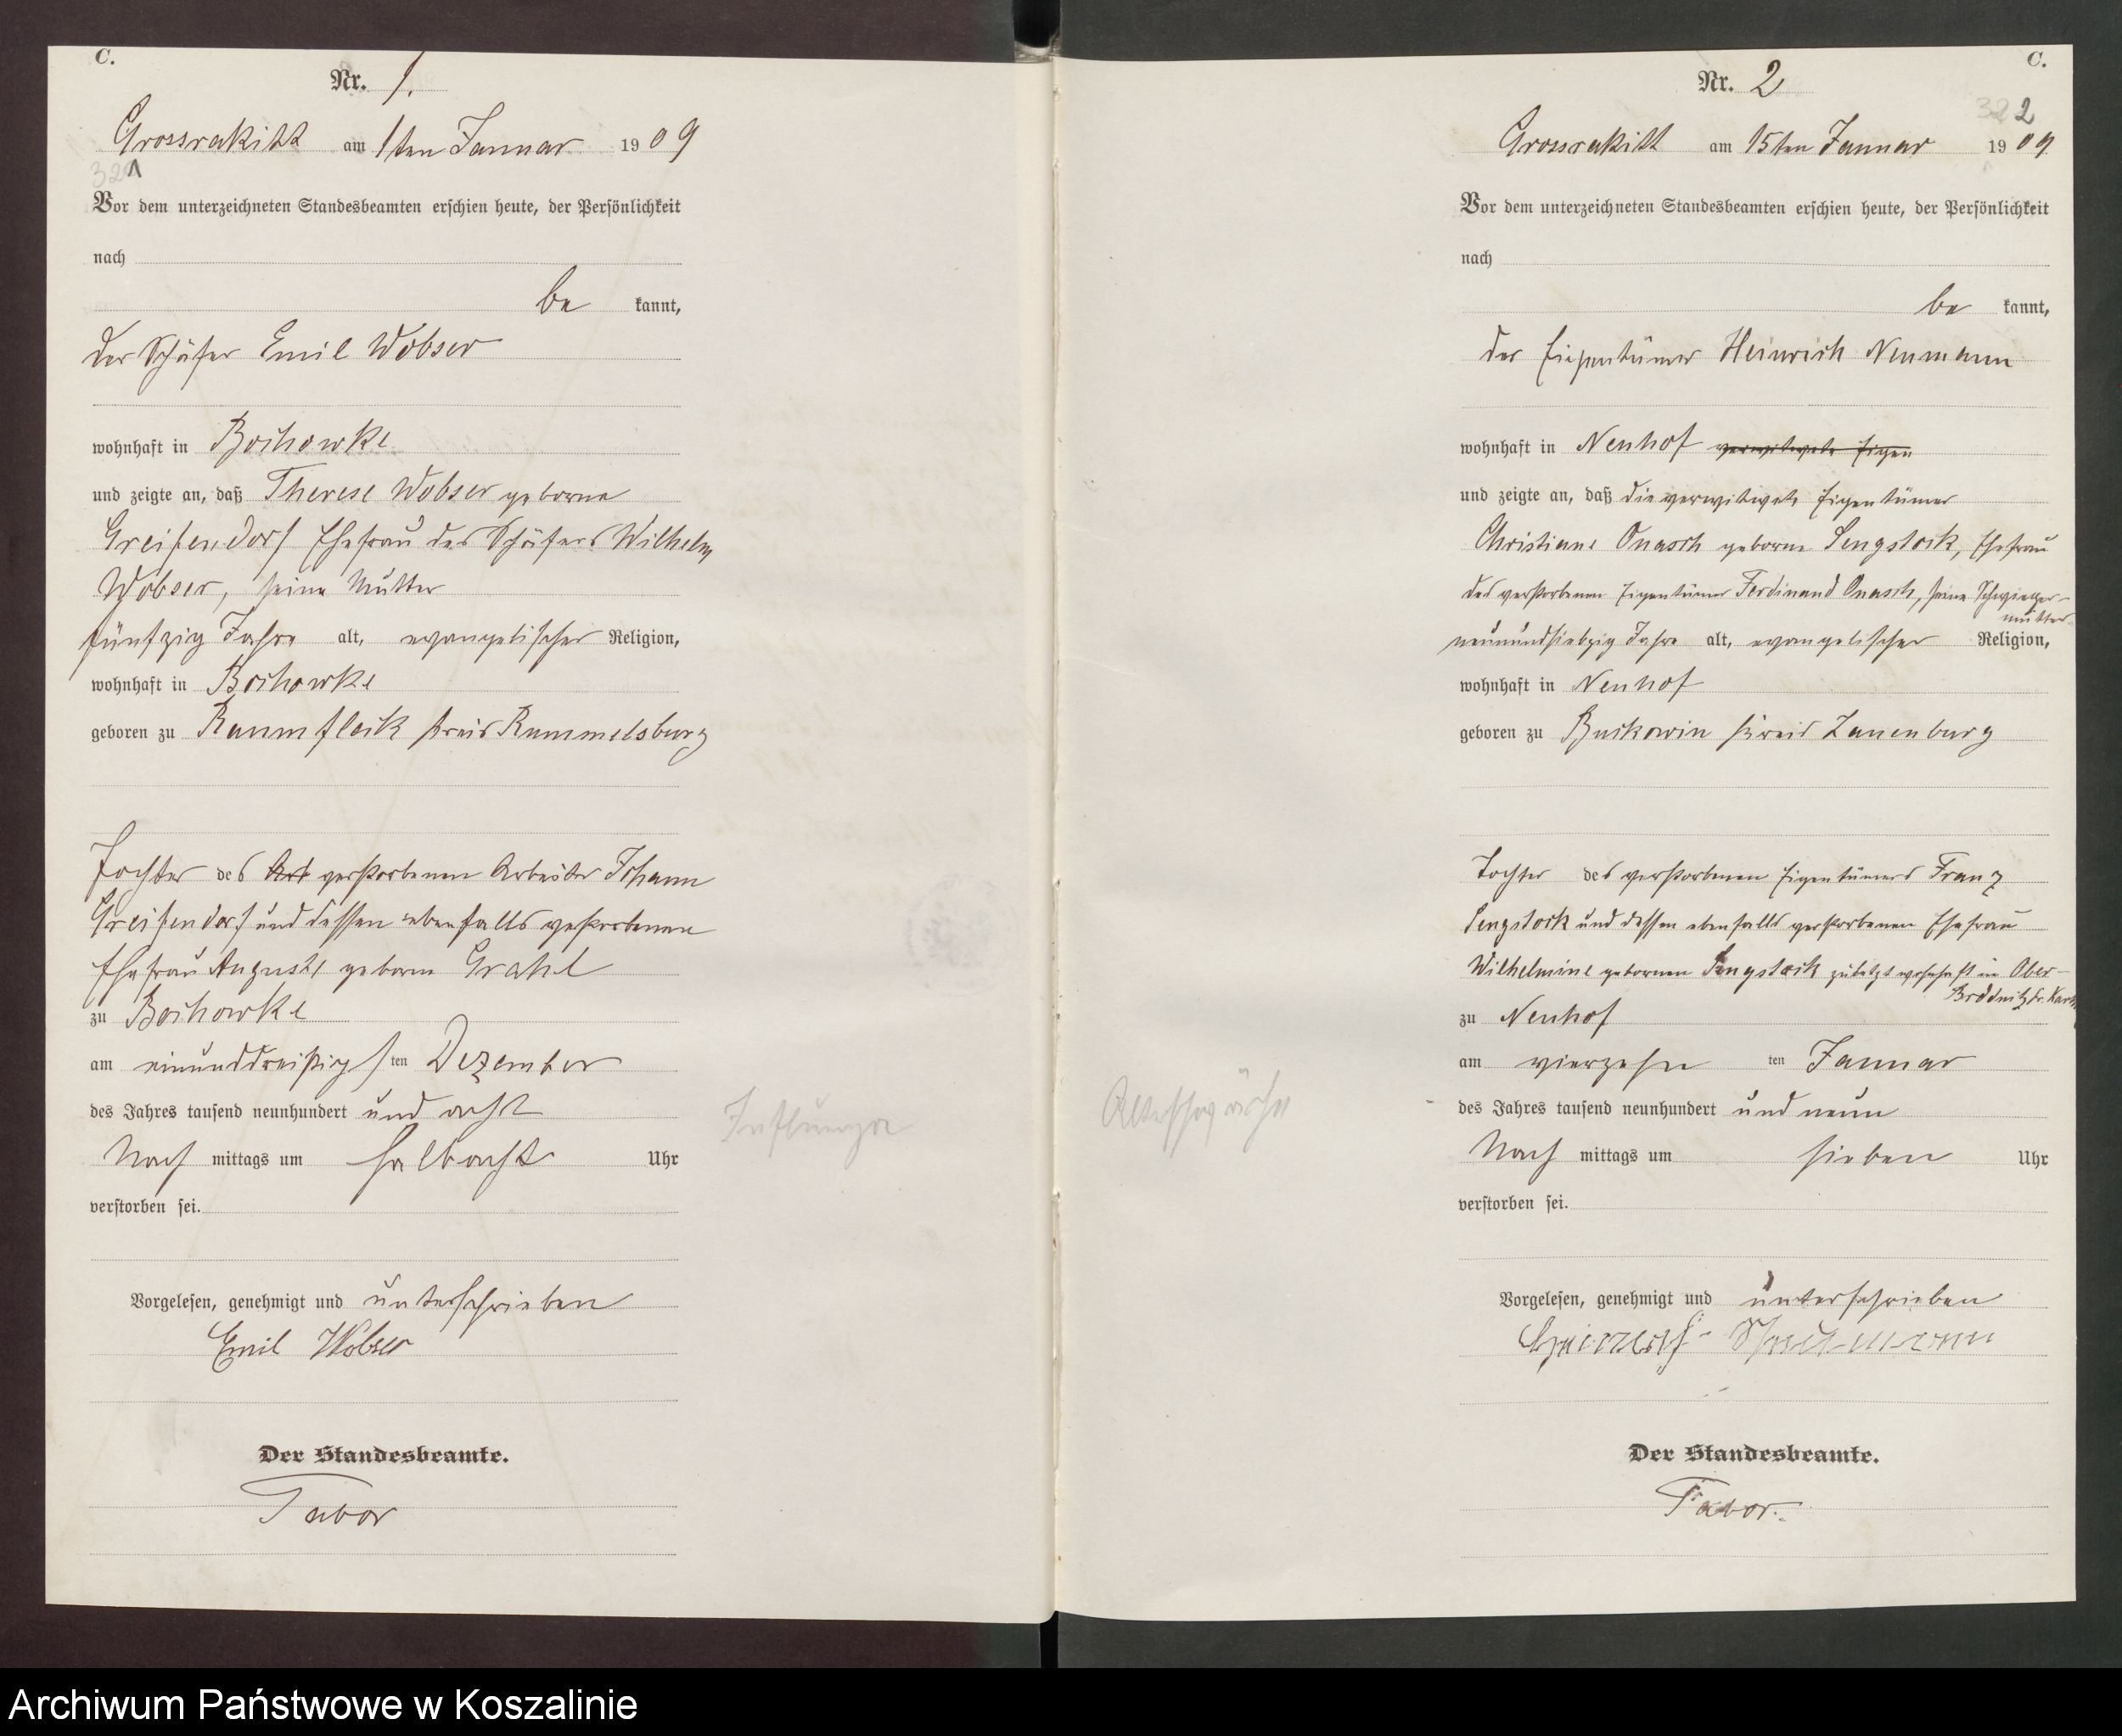 C.
Nr. 1.
Grossrakitt am 1ten Januar 1909
Vor dem unterzeichneten Standesbeamten erschien heute, der Persönlichkeit
nach
be kannt,
der Schäfer Emil Wobser
wohnhaft in Bochowke
und zeigte an, daß Therese Wobser geborne
Greifendorf Ehefrau des Schäfers Wilhelm
Wobser, seine Mutter
fünfzig Jahre alt, evangelischer Religion,
wohnhaft in Bochowke
geboren zu Kreis Rummelsburg
Tochter des verstorbenen Arbeiter Johann
Greifendorf und dessen ebenfalls verstorbenen
Ehefrau Auguste geborne Grahl
zu Bochowke
am einunddreißigsten Dezember
des Jahres tausend neunhundert und acht
Nach mittags um halb acht Uhr
verstorben sei.
Vorgelesen, genehmigt und unterschrieben
Emil Wobser
Der Standesbeamte.
Tabor
Influenza
C.
Nr. 2
2
Grossrakitt am 15ten Januar 1909.
Vor dem unterzeichneten Standesbeamten erschien heute, der Persönlichkeit
nach
be kannt,
der Eigentümer Heinrich Neumann
wohnhaft in Neuhof verwitwete Eigen
und zeigte an, daß die verwitwete Eigentümer
Christiane Onasch geborne Sengstock, Ehefrau
des verstorbenen Eigentümer Ferdinand Onasch, seine Schwieger-
mutter
neunundsiebzig Jahre alt, evangelischer Religion,
wohnhaft in Neuhof
geboren zu Buckowin Kreis Lauenburg
Tochter des verstorbenen Eigentümers Franz
Sengstock und dessen ebenfalls verstorbenen Ehefrau
Wilhelmine gebornen Sengstock zuletzt wohnhaft in Ober-
Brodnitz Kr.
zu Neuhof
am vierzehn ten Januar
des Jahres tausend neunhundert und neun
Nach mittags um sieben Uhr
verstorben sei.
Vorgelesen, genehmigt und unterschrieben
Der Standesbeamte.
Tabor.
Altersschwäche
Archiwum Państwowe w Koszalinie